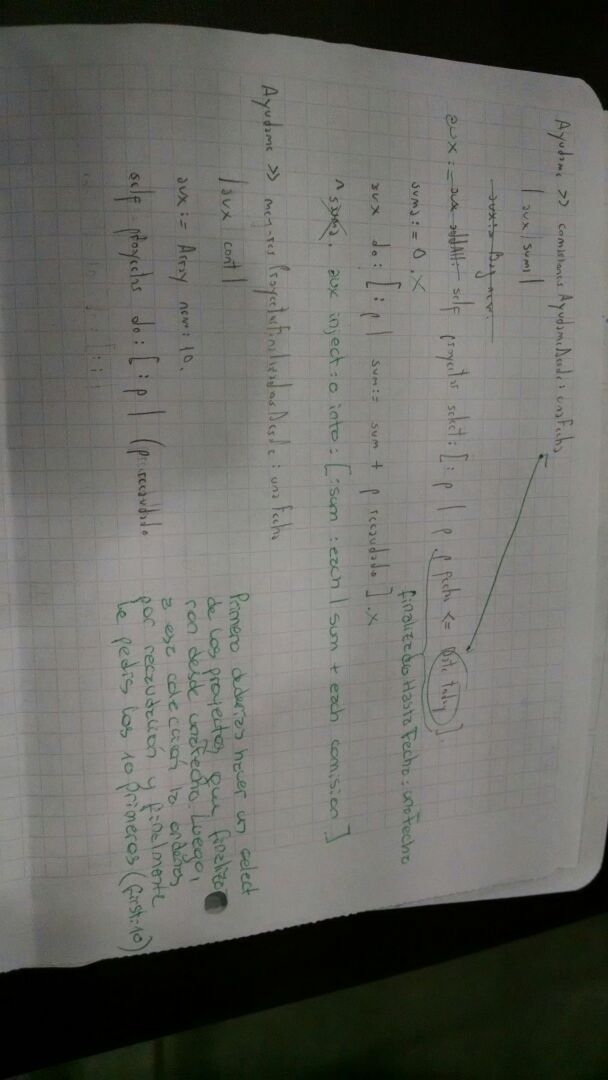 Ayudame >> comisionesAyudameDesde: unaFecha
| aux suma |
aux:= Bag new.
aux := aux addAll: self proyectos select: [: p | p p fecha <= Date today ].
finalizadoHastaFecha: unaFecha
suma := 0 . X
aux do: [ : p | sum := sum + p recaudado ] . X
^ suma. aux inject: 0 into: [ :sum :each | sum + each comision ]
Ayudame >> mejoresProyectosFinalizadosDesde: unaFecha
| aux cont |
aux := Array new: 10.
self proyectos do: [ : p | (p recaudado
Primero deberias hacer un select
de los proyectos que finaliza
ron desde unaFecha. Luego,
a esa colección la ordenas
por recaudación y finalmente
le pedis los 10 primeros (first: 10)